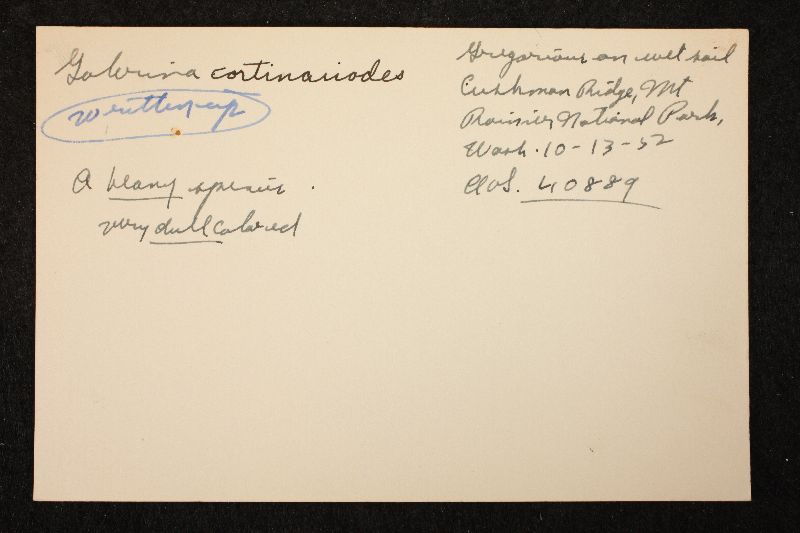 Galerina cortinariodes
written up
A heavy species.
very dull colored
Gregarious on wet soil
Cushman Ridge, Mt
Rainier National Park,
Wash. 10-13-52
AHS. 40889